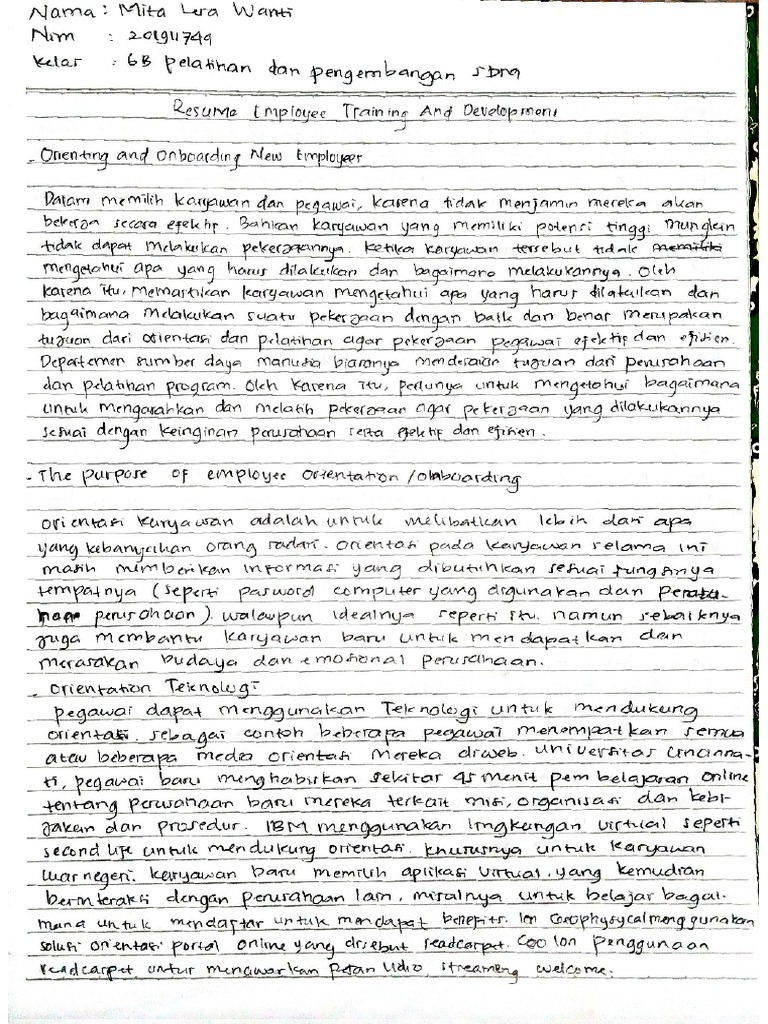 Nama : Mita Lera Wanti
Nim : 201911749
Kelas : 6B Pelatihan dan pengembangan SDM
Resume Employee Training And Development
- Orienting and Onboarding New Employees
Dalam memilih karyawan dan pegawai, karena tidak menjamin mereka akan
bekerja secara efektif. Bahkan karyawan yang memiliki potensi tinggi mungkin
tidak dapat melakukan pekerjaannya. Ketika karyawan tersebut tidak memiliki
mengetahui apa yang harus dilakukan dan bagaimana melakukannya. Oleh
karena itu, memastikan karyawan mengetahui apa yang harus dilakukan dan
bagaimana melakukan suatu pekerjaan dengan baik dan benar merupakan
tujuan dari orientasi dan pelatihan agar pekerjaan pegawai efektif dan efisien.
Departemen sumber daya manusia biasanya mendesain tujuan dari perusahaan
dan pelatihan program. Oleh karena itu, perlunya untuk mengetahui bagaimana
untuk mengarahkan dan melatih pekerjaan agar pekerjaan yang dilakukannya
sesuai dengan keinginan perusahaan serta efektif dan efisien.
- The purpose of employee Orientation / onboarding
Orientasi karyawan adalah untuk melibatkan lebih dari apa
yang kebanyakan orang sadari. Orientasi pada karyawan selama ini
masih memberikan informasi yang dibutuhkan sesuai fungsinya
tempatnya (seperti pasword computer yang digunakan dan
perusahaan). walaupun idealnya seperti itu, namun sebaiknya
juga membantu karyawan baru untuk mendapatkan dan
merasakan budaya dan emosional perusahaan.
- Orientation Teknologi
pegawai dapat menggunakan Teknologi untuk mendukung
orientasi. sebagai contoh beberapa pegawai menempatkan semua
atau beberapa media orientasi mereka diweb. Universitas Cincinna-
ti, pegawai baru menghabiskan sekitar 45 menit pembelajaran online
tentang perusahaan baru mereka terkait misi, organisasi dan kebi-
jakan dan prosedur. IBM menggunakan lingkungan virtual seperti
second life untuk mendukung orientasi. khususnya untuk karyawan
luar negeri. karyawan baru memilih aplikasi virtual, yang kemudian
berinteraksi dengan perusahaan lain, misalnya untuk belajar bagai-
mana untuk mendaftar untuk mendapat benefits. Ion Geophysycal menggunakan
solusi orientasi portal online yang disebut readcarpet. Coo Ion penggunaan
readcarpet untuk menawarkan streaming welcome.